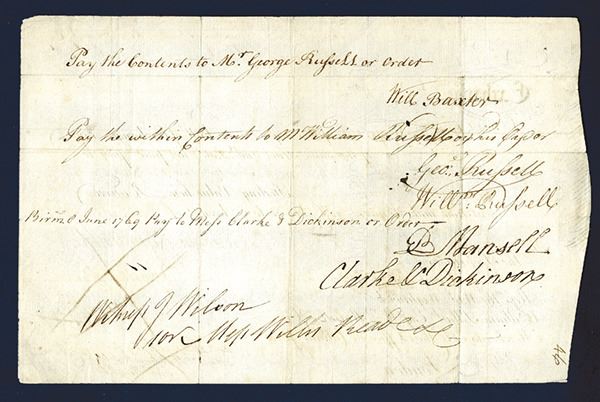 Pay the Contents to Mr. George Russell or order
Will Baxter
Pay the within Contents to Mr William Russell or his
Geo. Russell
Willm. Russell
June 1769 Pay to Mess Clarke & Dickinson or Order
B Mansell
Clarke & Dickinson
Witness J Wilson
for Mess Willis Reade & Co
46